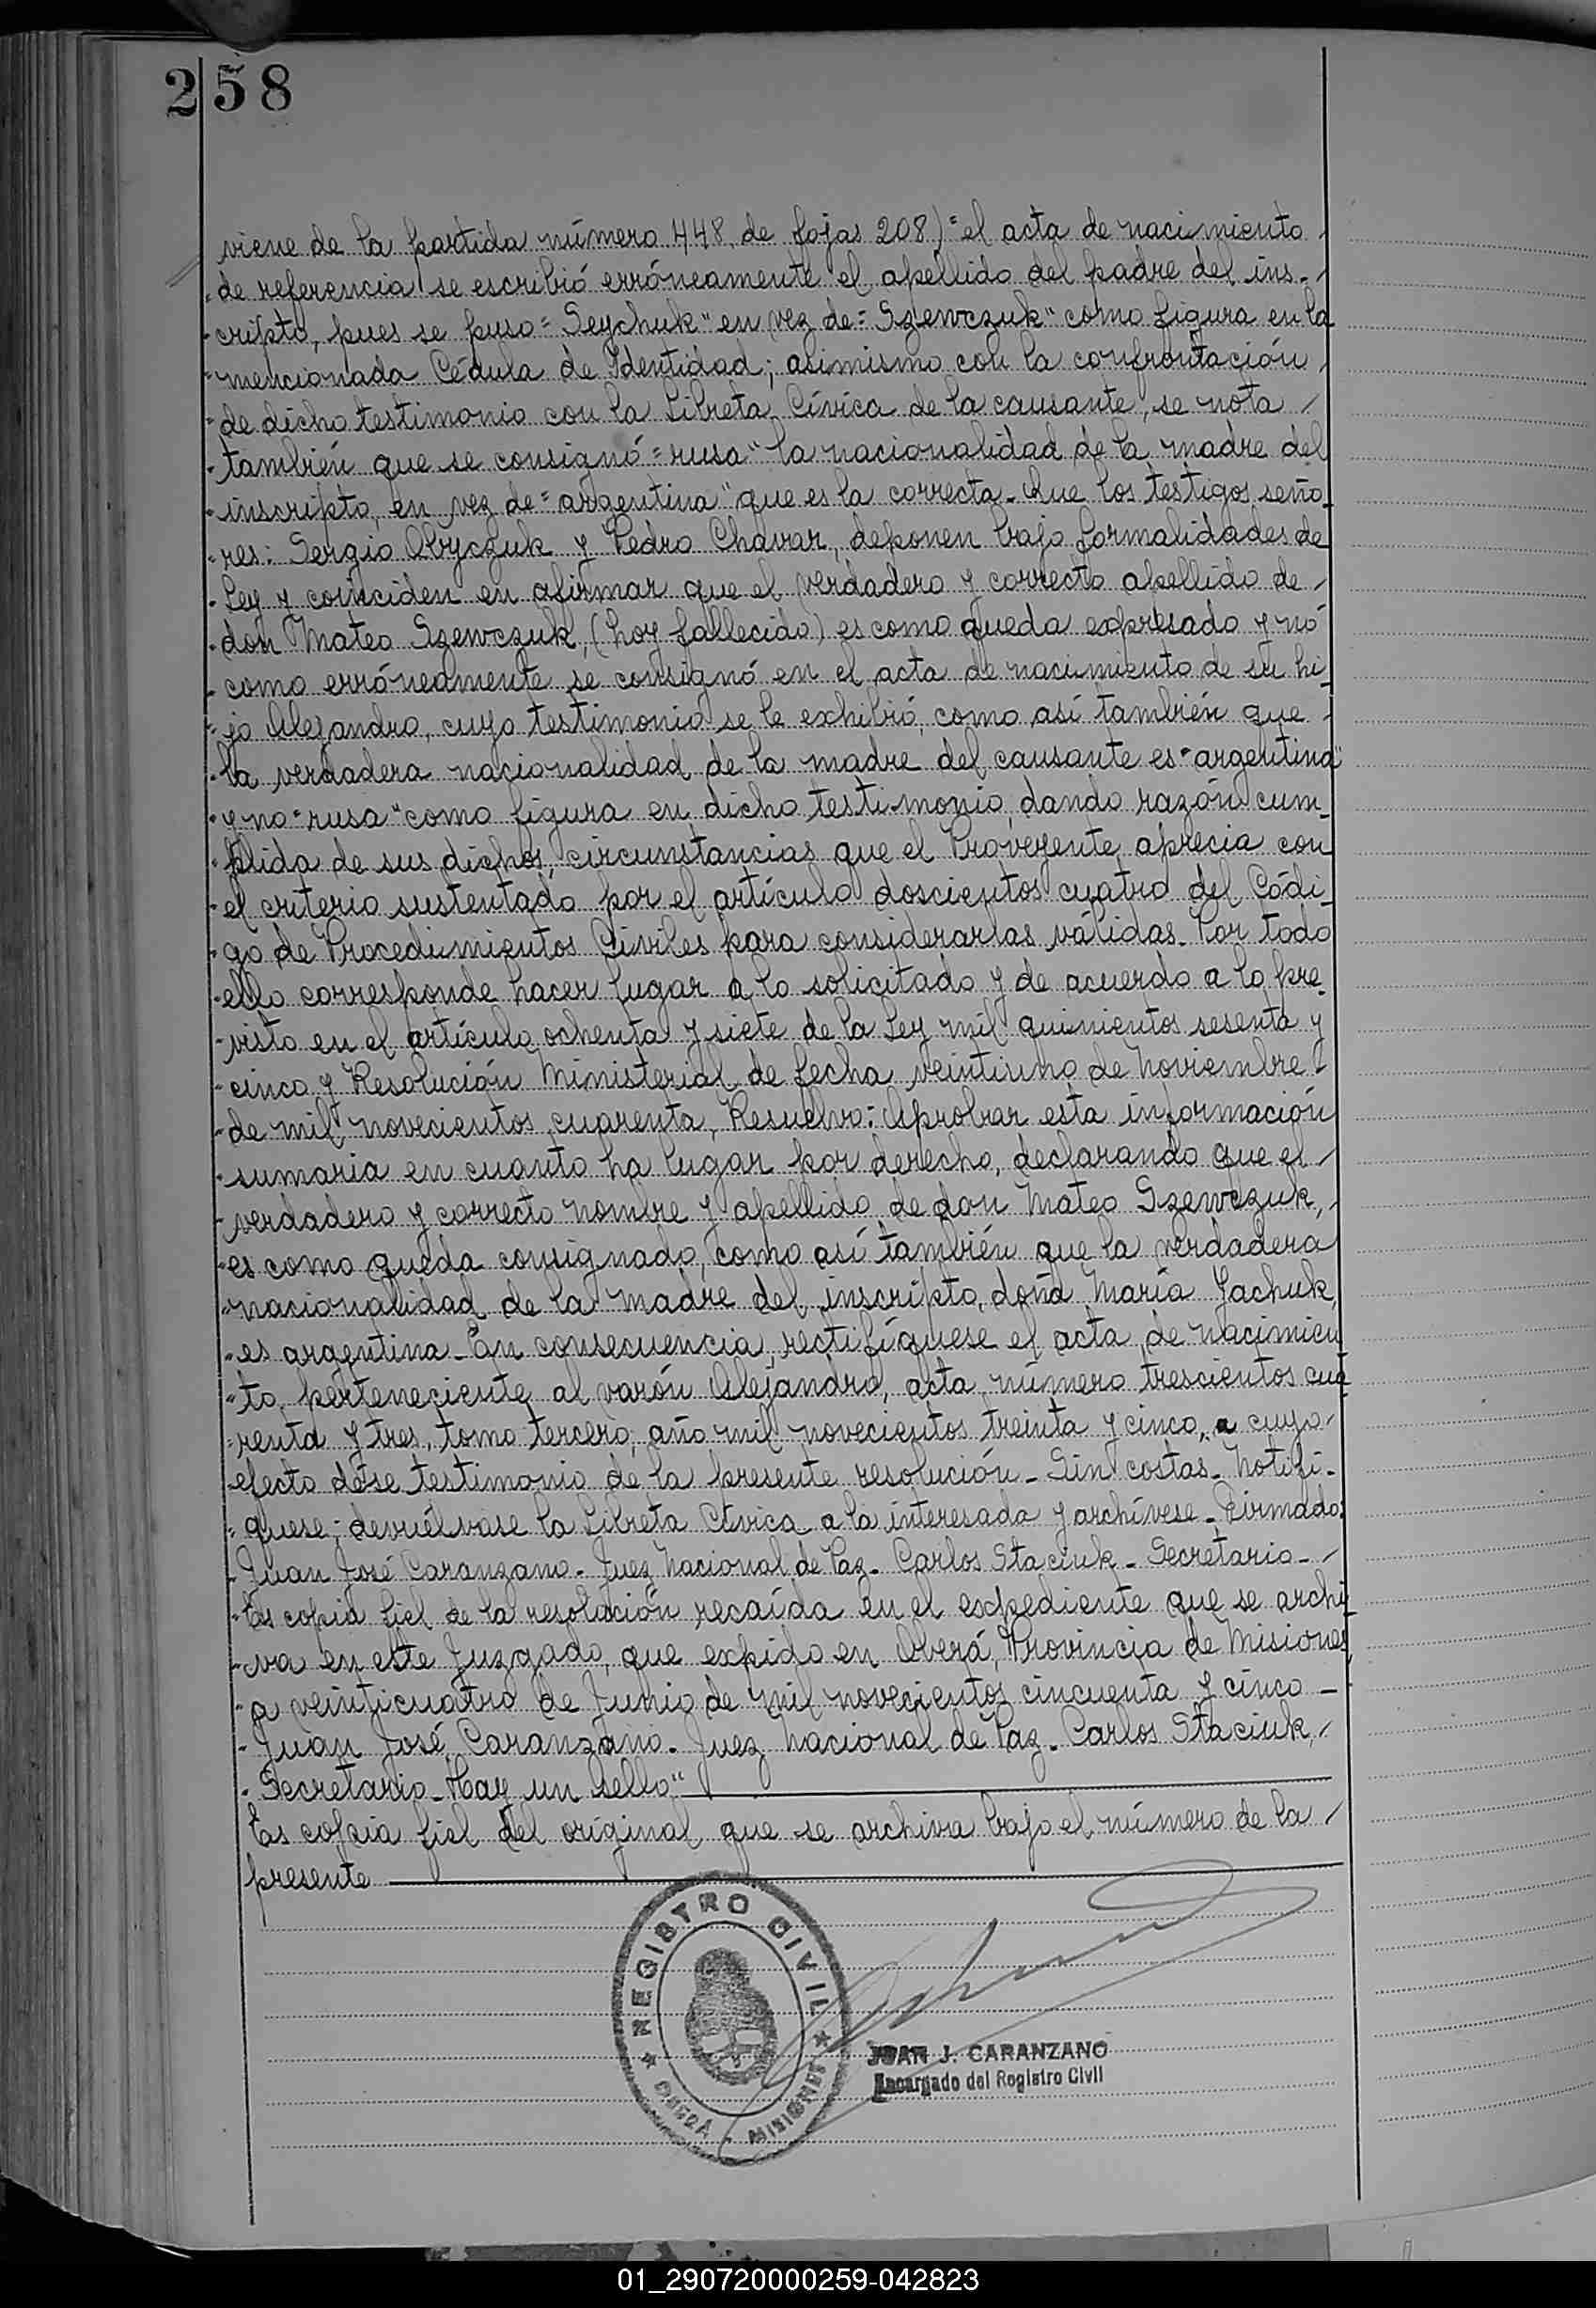 258
viene de la partida número 448, de fojas 208) "el acta de nacimiento /
"de referencia se escribió erróneamente el apellido del padre del ins-/
"cripto, pues se puso "Seychuk" en vez de "Szewczuk" como figura en la
"mencionada Cédula de Identidad; asimismo con la confrontación /
"de dicho testimonio con la Libreta Cívica de la causante, se nota /
"también que se consignó "rusa" la nacionalidad de la madre del
"inscripto, en vez de "argentina" que es la correcta.- Que los testigos seño-
"res: Sergio Obyczuk y Pedro Chavar, deponen bajo formalidades de
"Ley y coinciden en afirmar que el verdadero y correcto apellido de /
"don Mateo Szewczuk, (hoy fallecido) es como queda expresado y nó
"como erróneamente se consignó en el acta de nacimiento de su hi-
"jo Alejandro, cuyo testimonio se le exhibió, como así también que
"la verdadera nacionalidad de la madre del causante es "argentina"
"y no "rusa" como figura en dicho testimonio, dando razón cum-
"plida de sus dichos, circunstancias que el Proveyente aprecia con
"el criterio sustentado por el artículo doscientos cuatro del Códi-
"go de Procedimientos Civiles para considerarlas válidas.- Por todo
"ello corresponde hacer lugar a lo solicitado y de acuerdo a lo pre-
"visto en el artículo ochenta y siete de la Ley mil quinientos sesenta y
"cinco y Resolución Ministerial de fecha veintiuno de Noviembre /
"de mil novecientos cuarenta, Resuelvo: Aprobar esta información
"sumaria en cuanto ha lugar por derecho, declarando que el /
"verdadero y correcto nombre y apellido de don Mateo Szewczuk, /
"es como queda consignado, como así también que la verdadera
"nacionalidad de la madre del inscripto, doña María Jachuk,
"es argentina.- En consecuencia, rectifíquese el acta de nacimien
"to, perteneciente al varón Alejandro, acta número trescientos cua
"renta y tres, tomo tercero, año mil novecientos treinta y cinco, a cuyo/
"efecto dése testimonio de la presente resolución.- Sin costas.- Notifí-
"quese; devuélvase la Libreta Cívica a la interesada y archívese.- Firmado:
"Juan José Caranzano.- Juez Nacional de Paz.- Carlos Staciuk - Secretario.- /
"Es copia fiel de la resolución recaída en el expediente que se archi-
"va en este Juzgado, que expido en Oberá, Provincia de Misiones
"a veinticuatro de Junio de mil novecientos cincuenta y cinco -
"Juan José Caranzano.- Juez Nacional de Paz.- Carlos Staciuk, /
"Secretario.- Hay un sello"
Es copia fiel del original que se archiva bajo el número de la /
presente
REGISTRO CIVIL
OBERÁ - MISIONES
JUAN J. CARANZANO
Encargado del Registro Civil
01_290720000259-042823